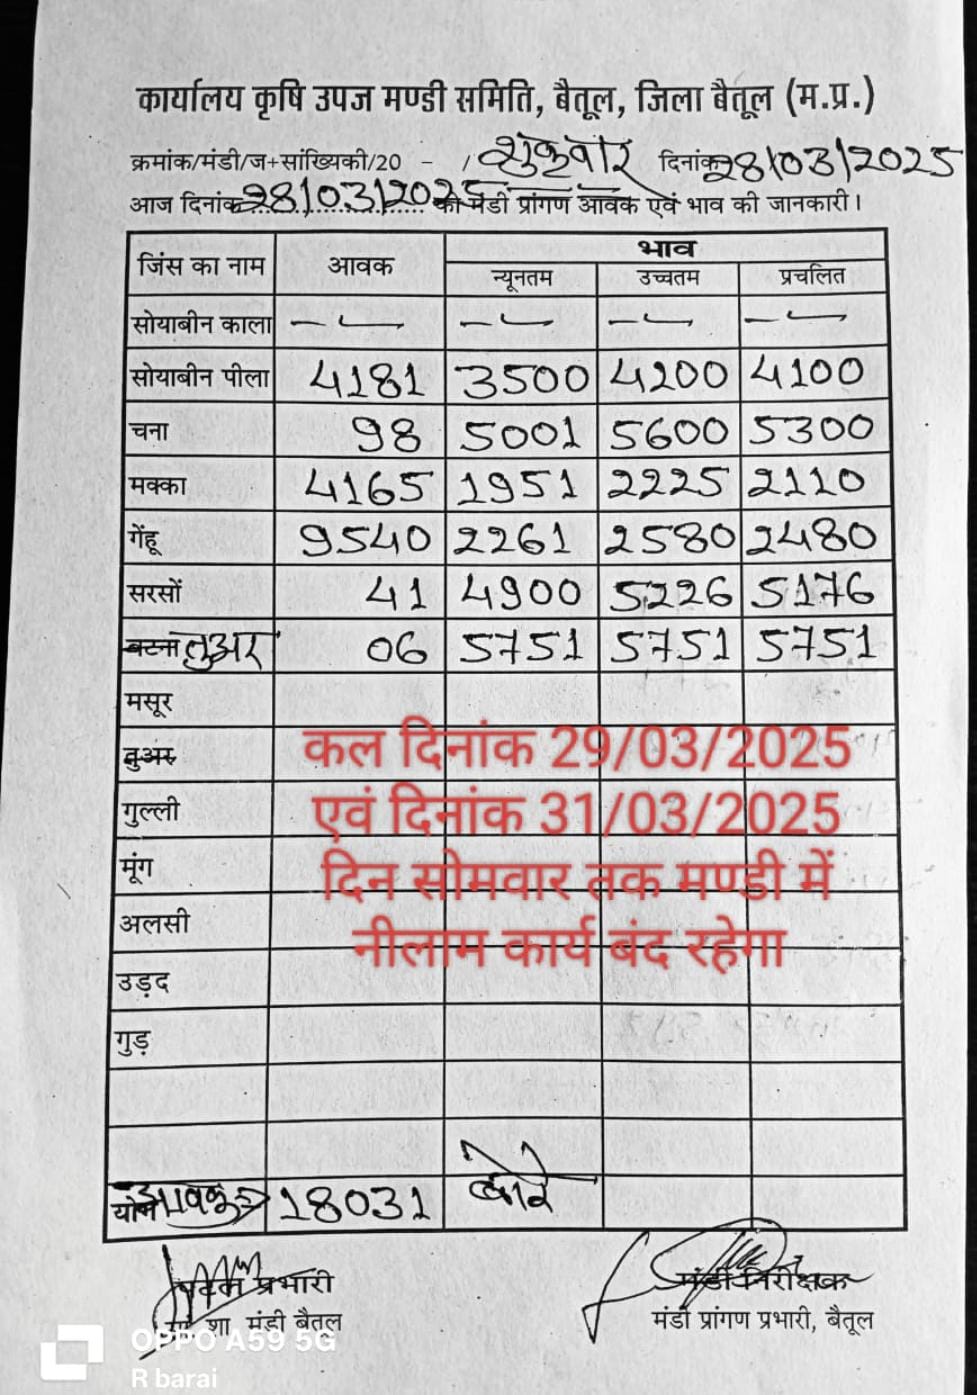 कार्यालय कृषि उपज मण्डी समिति, बैतूल, जिला बैतूल (म.प्र.)
क्रमांक/मंडी/ज+सांख्यिकी/20 - / शुक्रवार दिनांक 28/03/2025
आज दिनांक 28/03/2025 को मंडी प्रांगण आवक एवं भाव की जानकारी।
जिंस का नाम आवक भाव
न्यूनतम उच्चतम प्रचलित
सोयाबीन काला — — — —
सोयाबीन पीला 4181 3500 4200 4100
चना 98 5001 5600 5300
मक्का 4165 1951 2225 2110
गेंहू 9540 2261 2580 2480
सरसों 41 4900 5226 5176
बटना तुअर 06 5751 5751 5751
मसूर
तुअर
कल दिनांक 29/03/2025
गुल्ली
एवं दिनांक 31/03/2025
मूंग
दिन सोमवार तक मण्डी में
अलसी
नीलाम कार्य बंद रहेगा
उड़द
गुड़
योग आवक 18031 बोरे
प्रभारी मंडी निरीक्षक
शा, मंडी बैतूल मंडी प्रांगण प्रभारी, बैतूल
OPPO A59 5G
R barai